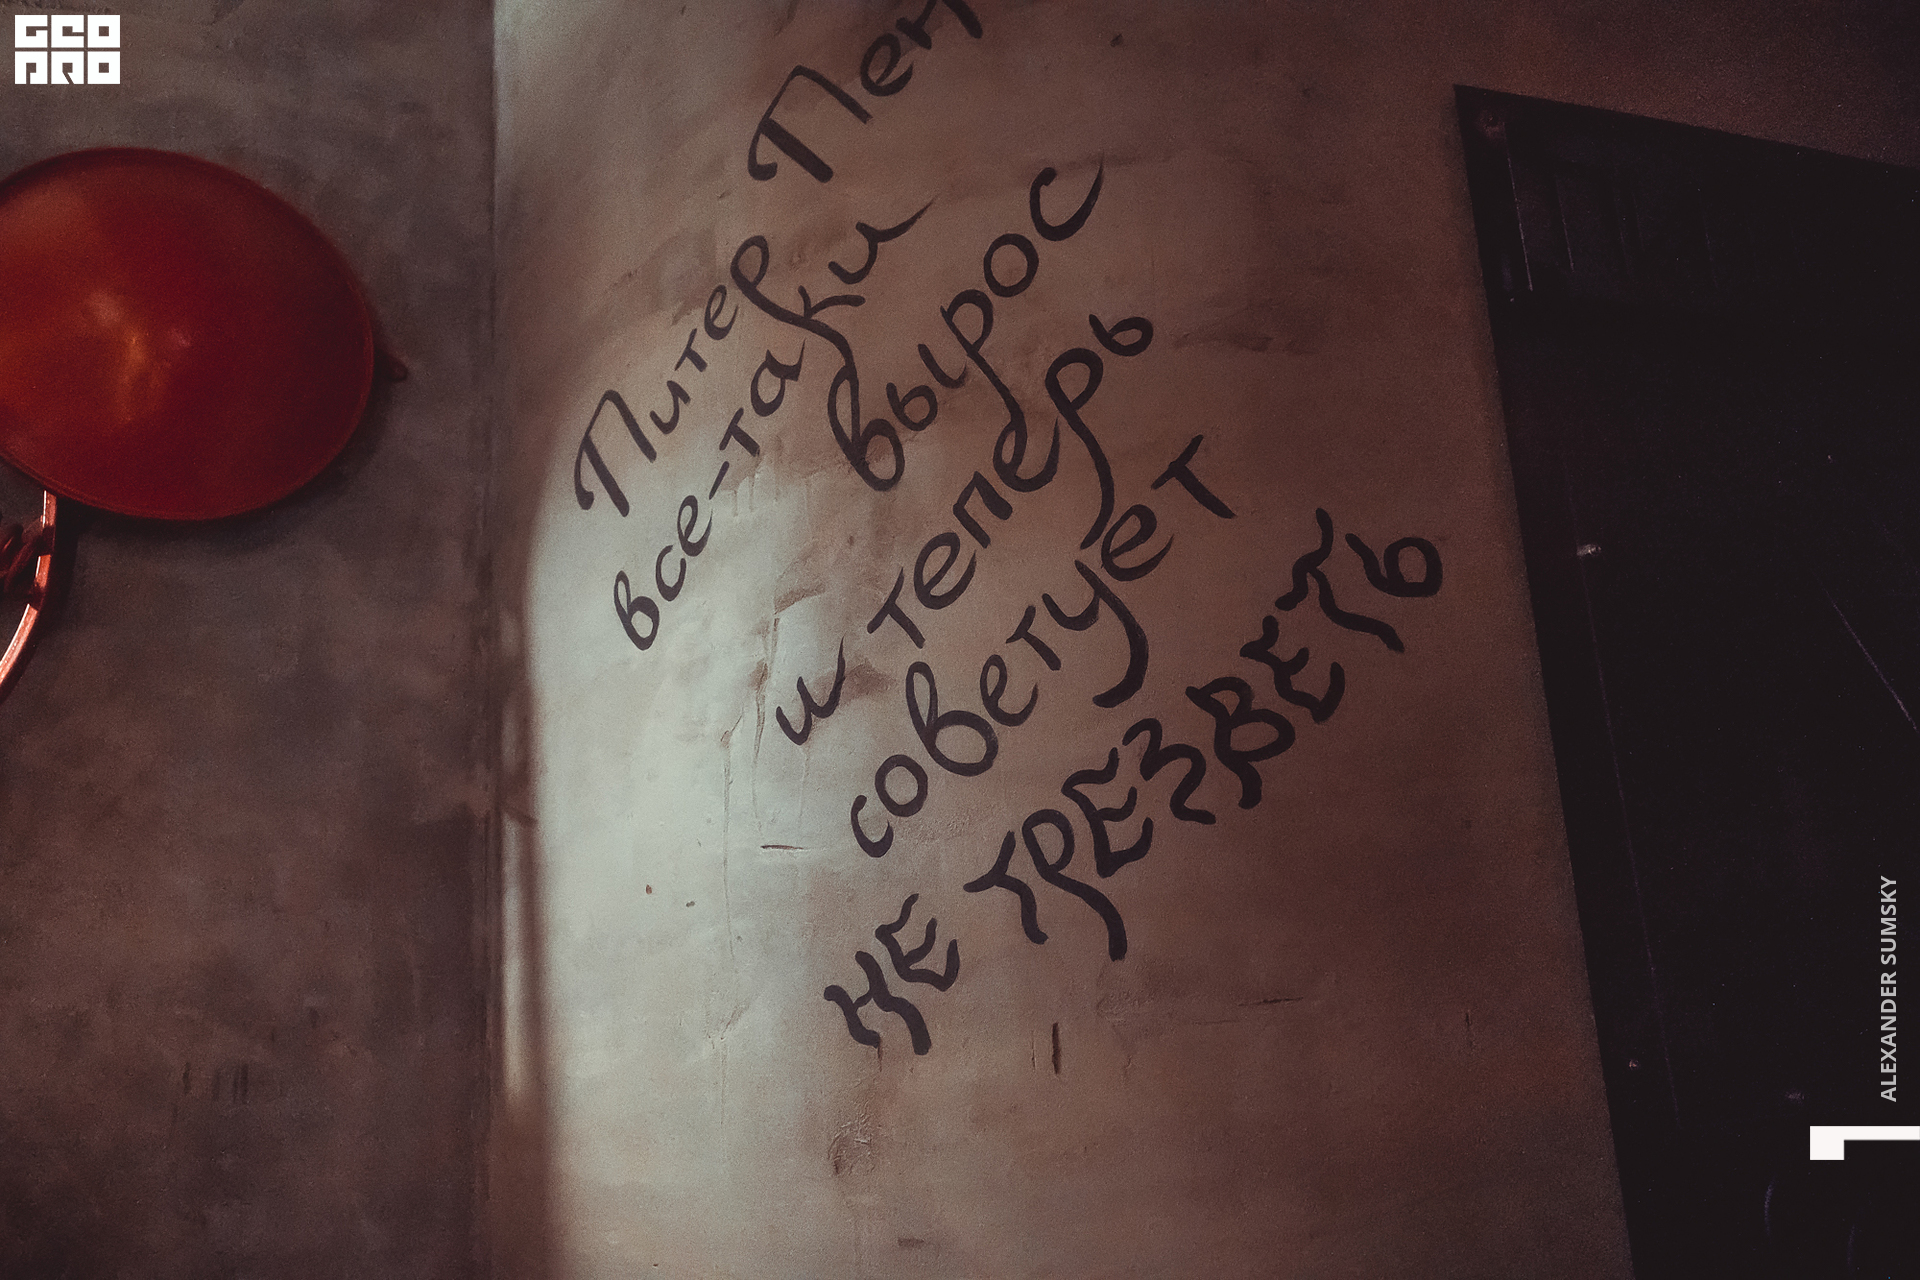 GEO
PRO
Питер Пен
все-таки
вырос
и теперь
советует
НЕ ТРЕЗВЕТЬ
ALEXANDER SUMSKY